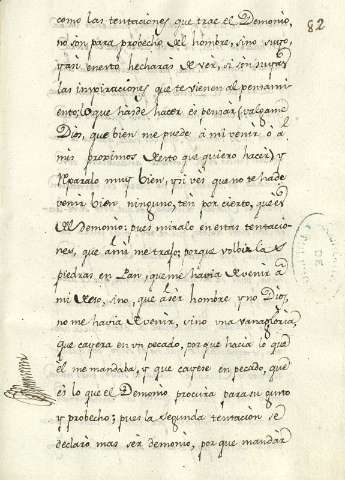 82
como las tentaciones que trae el Demonio,
no son para probecho del hombre, sino suyo,
y asi en esto hecharas de ver, si son suyas
las inspiraciones que te vienen al pensami
ento, lo que hasde hacer es pensar (valgame
Dios, que bien me puede â mi venir ò â
mis proximos desto que quiero hacer) y
reparalo muy bien, y si ves que no te hade
venir bien ninguno, ten por cierto, que es
del Demonio: pues miralo en estas tentacio-
nes, que â mi me trajo; porque volbir las
piedras en Pan, que me havia de venir â
mi deso, sino, que â ser hombre y no Dios,
no me havia de venir, sino una vanagloria,
que cayera en un pecado, por que hacia lo que
èl me mandaba, y que cayese en pecado, que
es lo que el Demonio procura para su gusto
y probecho; pues la segunda tentacion se
declarò mas ser demonio, por que mandar